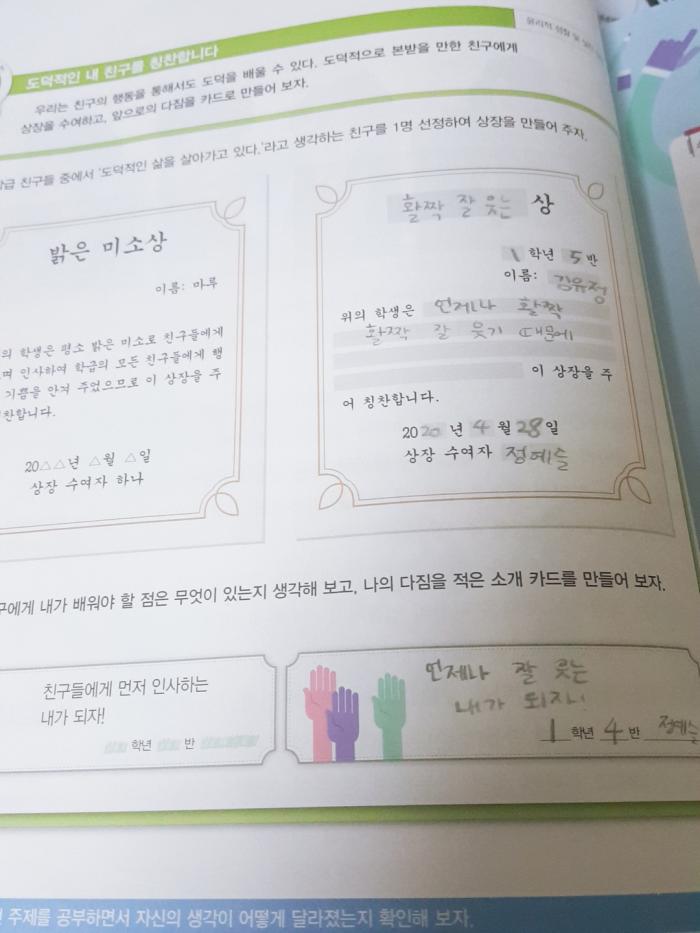 도덕적인 내 친구를 칭찬합니다
우리는 친구의 행동을 통해서도 도덕을 배울 수 있다. 도덕적으로 본받을 만한 친구에게
상장을 수여하고, 앞으로의 다짐을 카드로 만들어 보자.
급 친구들 중에서 '도덕적인 삶을 살아가고 있다.'라고 생각하는 친구를 1명 선정하여 상장을 만들어 주자.
밝은 미소상
이름: 마루
의 학생은 평소 밝은 미소로 친구들에게
며 인사하여 학급의 모든 친구들에게 행
기쁨을 안겨 주었으므로 이 상장을 주
찬합니다.
20△△년 △월 △일
상장 수여자 하나
활짝 잘 웃는 상
1 학년 5 반
이름: 김유정
위의 학생은 언제나 활짝
활짝 잘 웃기 때문에
이 상장을 주
어 칭찬합니다.
2020 년 4 월 28 일
상장 수여자 정예슬
구에게 내가 배워야 할 점은 무엇이 있는지 생각해 보고, 나의 다짐을 적은 소개 카드를 만들어 보자.
친구들에게 먼저 인사하는
내가 되자!
학년 반
언제나 잘 웃는
내가 되자!
1 학년 4 반 정예슬
주제를 공부하면서 자신의 생각이 어떻게 달라졌는지 확인해 보자.